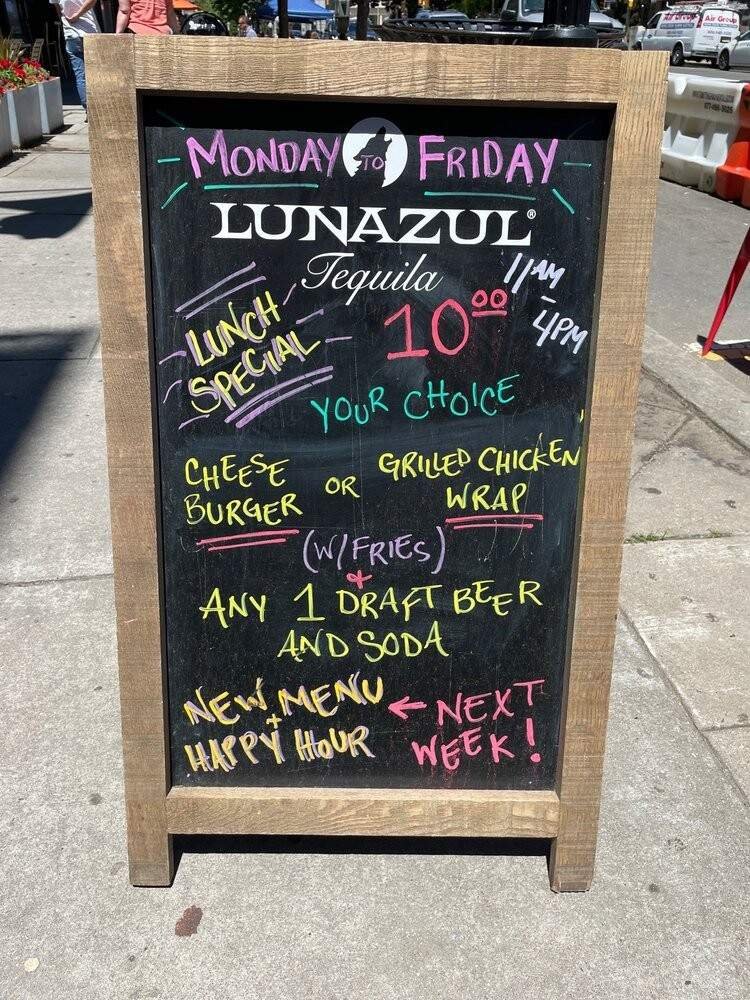 MONDAY TO FRIDAY
LUNAZUL®
Tequila
11AM
-
4PM
LUNCH
SPECIAL
10⁰⁰
YOUR CHOICE
CHEESE
BURGER
OR
GRILLED CHICKEN
WRAP
(W/FRIES)
+
ANY 1 DRAFT BEER
AND SODA
NEW MENU
+
HAPPY HOUR
← NEXT
WEEK!
Air Group